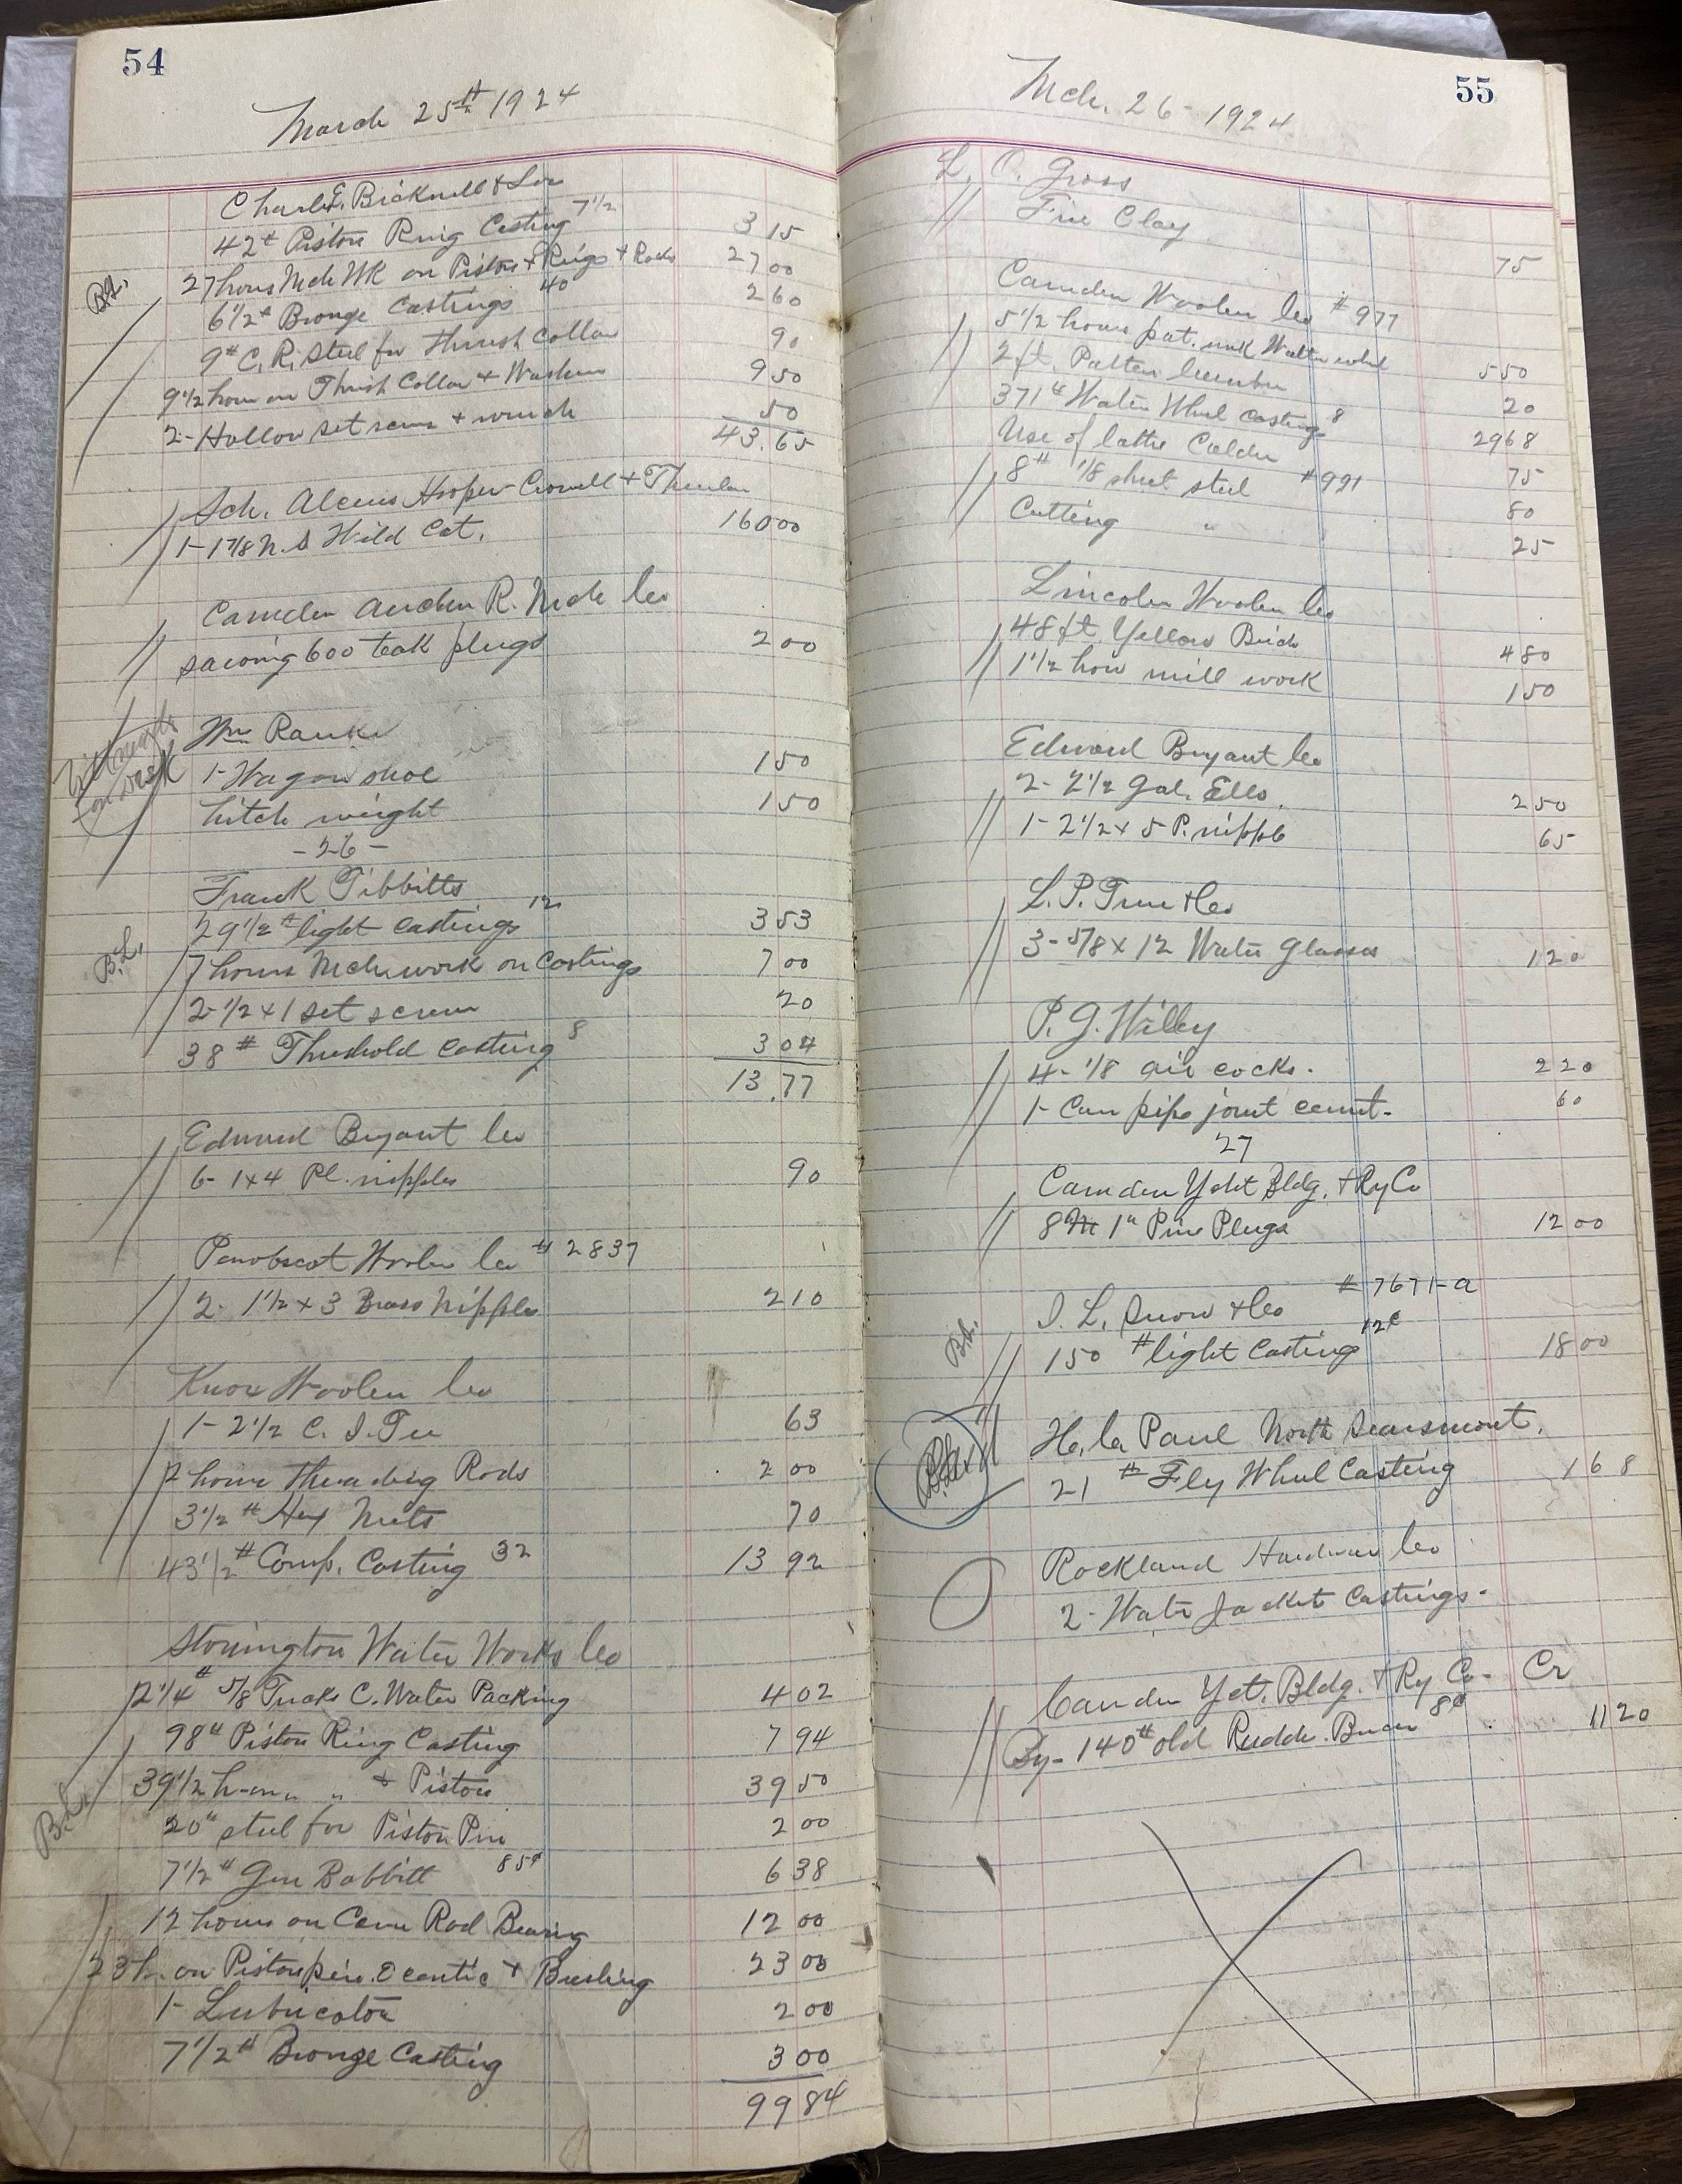 54
March 25th 1924
Charles E. Bicknell & Son
42# Piston Ring Casting 7 1/2 3 15
B.L. 27 hours Mch Wk on Piston & Rings & Rods 27 00
6 1/2# Bronze Castings 40 2 60
9# C. R. Steel for Thrush Collar 90
9 1/2 hour on Thrush Collar & Washers 9 50
2- Hollow set screw & wrench 50
43.65
Sch. Alcaeus Hooper Crowell & Thurlow
1- 1 7/8 N. S Wild Cat. 160 00
Camden Anchor R. Mch Co
sawing 600 teak plugs 2 00
Wm Rankin
1- Wagon shoe 1 50
hitch weight 1 50
- 26 -
Frank Tibbitts
29 1/2# light castings 12 3 53
B.L. 7 hours Mch work on Castings 7 00
2- 1/2 x 1 set screw 20
38# Threshold Casting 8 3 04
13.77
Edward Bryant Co
6- 1x4 Pl. nipples 90
Penobscot Woolen Co # 2837
2- 1 1/2 x 3 Brass Nipples 2 10
Knox Woolen Co
1- 2 1/2 C. I. Tee 63
2 hours Threading Rods 2 00
3 1/2# Hex Nuts 70
43 1/2# Comp. Casting 32 13 92
Stonington Water Works Co
2 1/4# 5/8 Tucks C. Water Packing 4 02
98# Piston Ring Casting 7 94
39 1/2 h-on " " & Piston 39 50
B.L. 20# steel for Piston Pin 2 00
7 1/2# Gen Babbitt 85¢ 6 38
12 hours on Conn Rod Bearing 12 00
23 h. on Piston pin. Ecentric & Bushing 23 00
1- Lubricator 2 00
7 1/2# Bronze Casting 3 00
99 84
55
Mch. 26- 1924
L. O. Gross
Fire Clay 75
Camden Woolen Co # 977
5 1/2 hours pat. wk Water wheel 5 50
2 ft. Patten lumber 20
371# Water Wheel castings 8 29 68
Use of lathe Calder 75
8# 1/8 sheet steel #991 80
Cutting " 25
Lincoln Woolen Co
48 ft. Yellow Birch 4 80
1 1/2 hour mill work 1 50
Edward Bryant Co
2- 2 1/2 Gal. Ells. 2 50
1- 2 1/2 x 5 P. nipple 65
L. P. True & Co
3- 5/8 x 12 Water Glasses 1 20
P. G. Willey
4- 1/8 air cocks. 2 20
1- Can pipe joint cemnt. 60
27
Camden Ycht Bldg. & Ry Co
8 M 1" Pine Plugs 12 00
I. L. Snow & Co # 7671-a
B.L. 150 # light Casting 12¢ 18 00
Paul North Searsmont.
21 # Fly Wheel Casting 1 68
Rockland Hardware Co
2- Water Jacket Castings-
Camden Ycht. Bldg. & Ry Co- Cr
By- 140# old Rudder Braces 8¢ 11 20